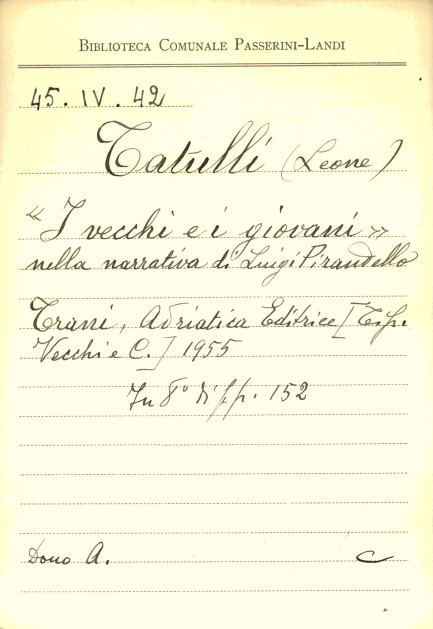 BIBLIOTECA COMUNALE PASSERINI-LANDI
45. IV. 42
Tatulli (Leone)
« I vecchi e i giovani »
nella narrativa di Luigi Pirandello
Trani, Adriatica Editrice [Tip.
Vecchi e C.] 1955
In 8° di pp. 152
Dono A. C